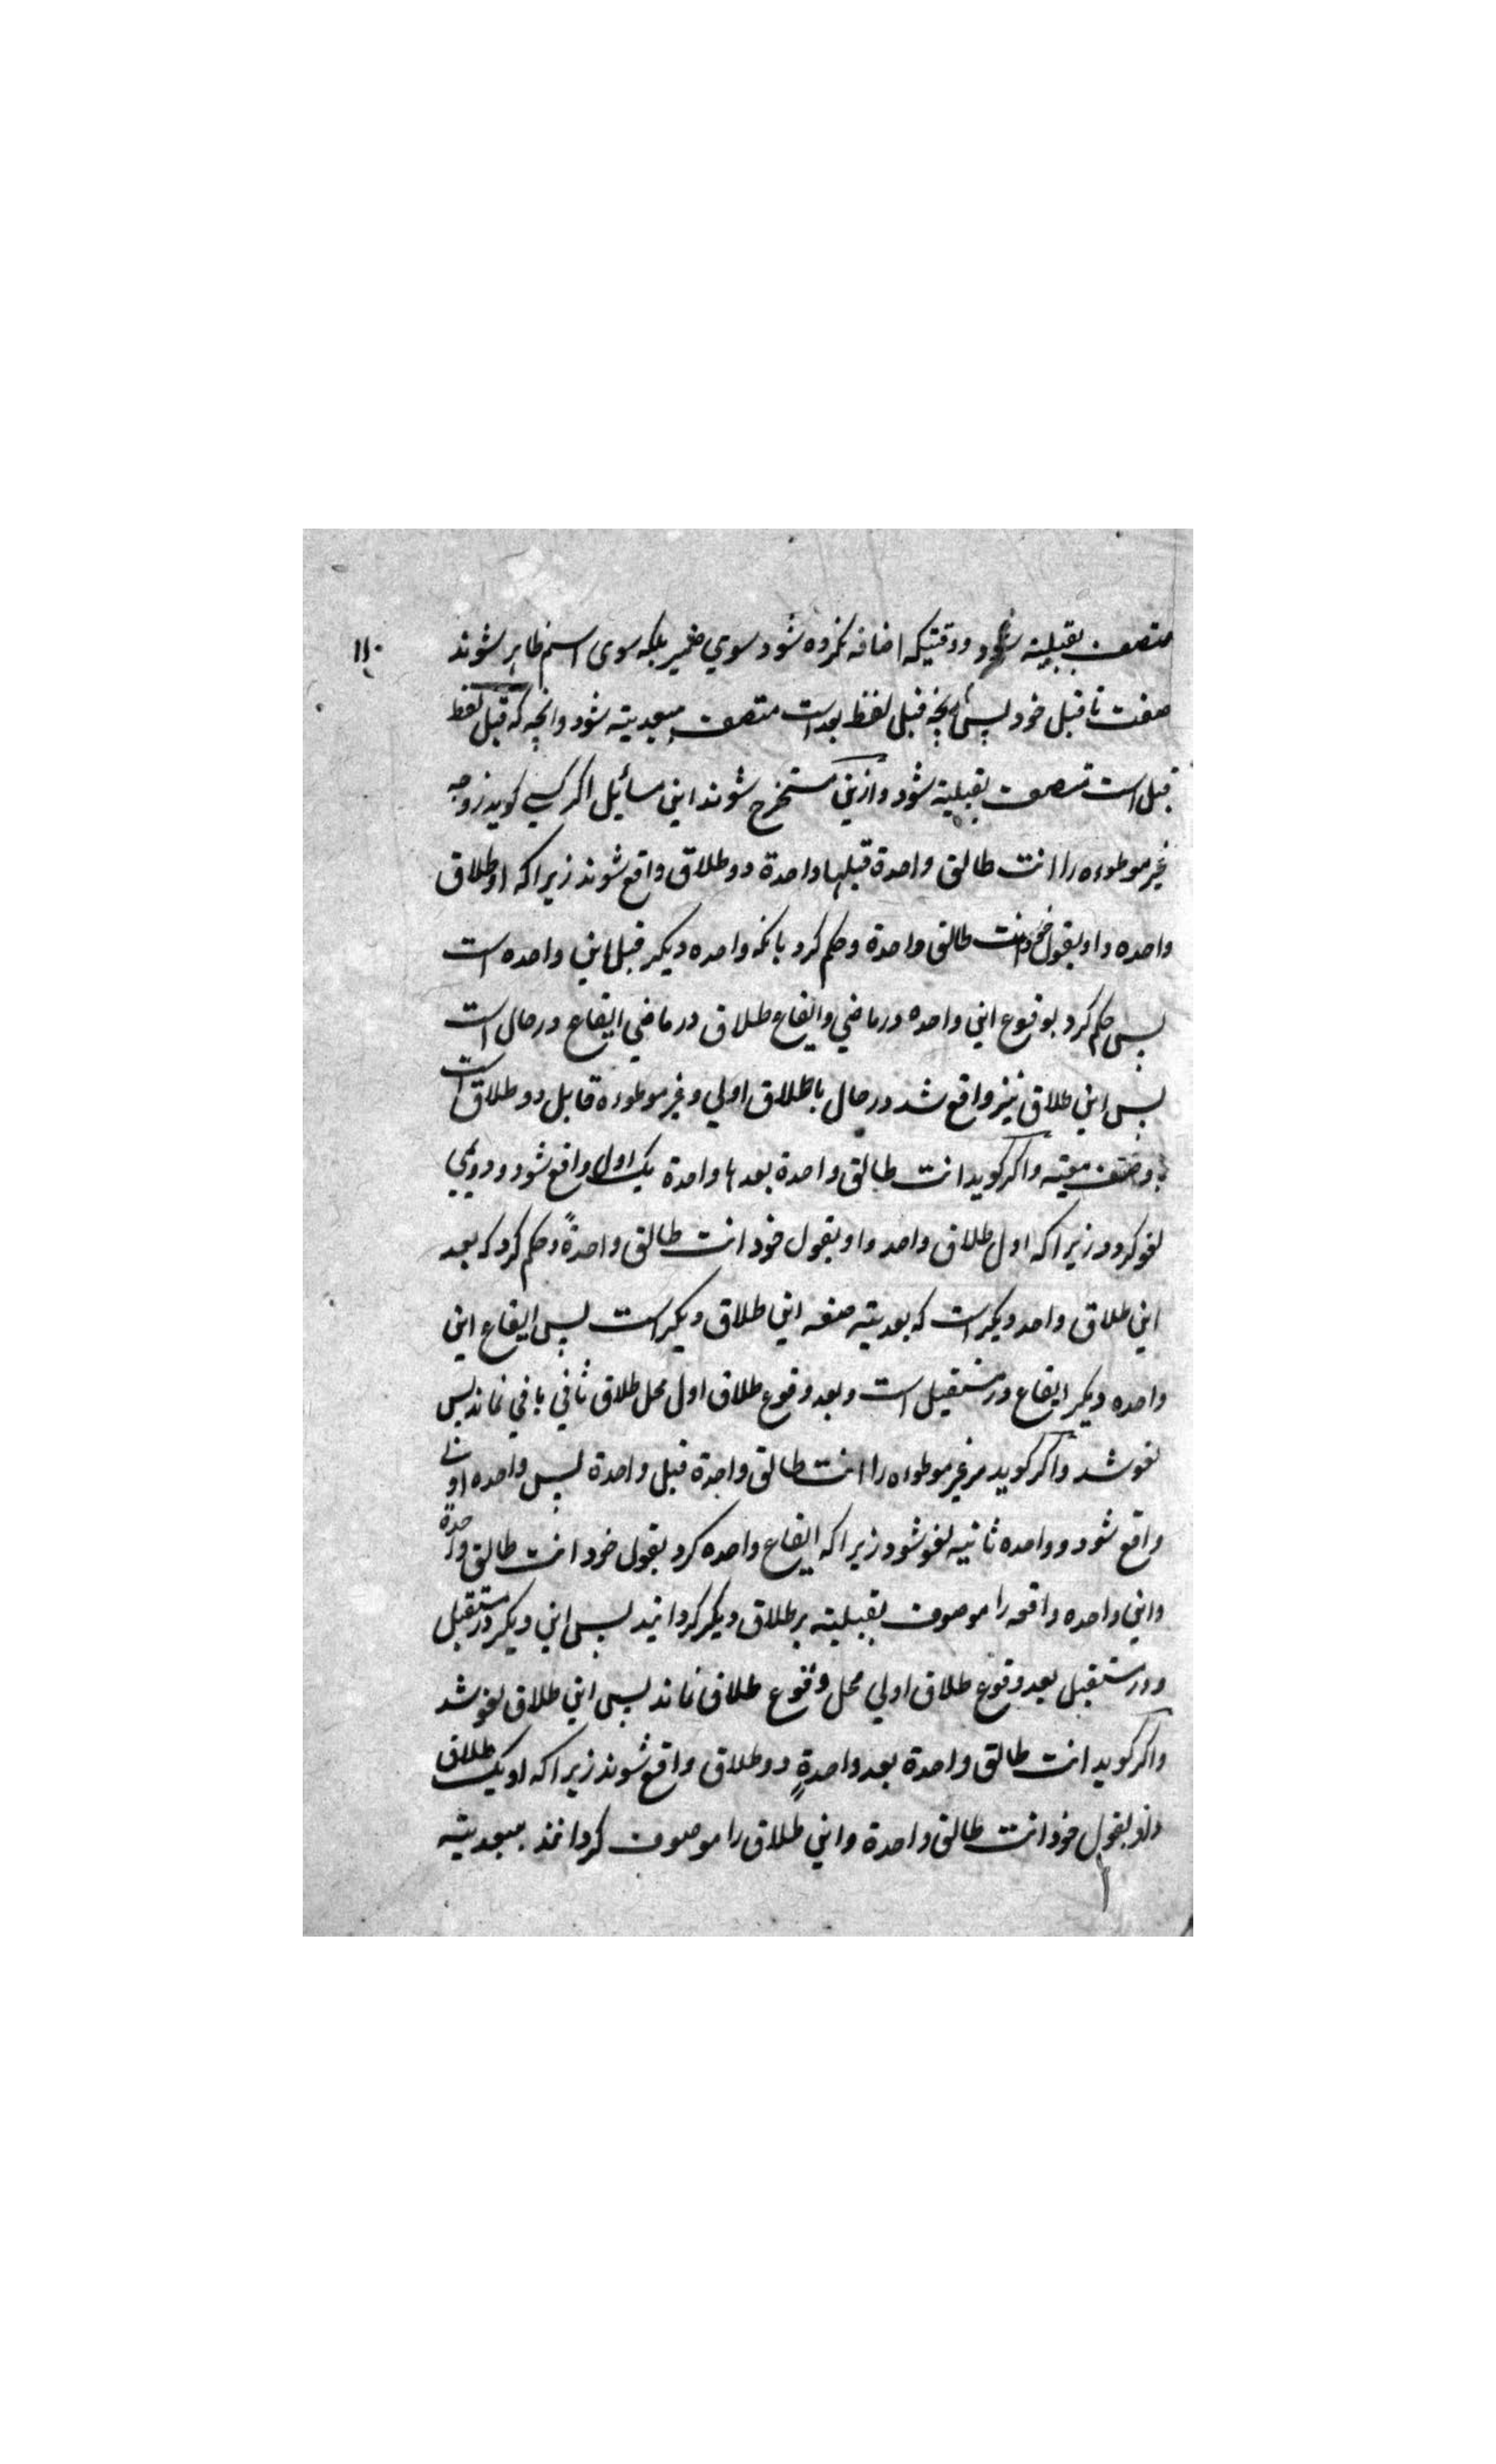 متصف بقبلیته شود و وقتیکه اضافه نکرده شود سوي ضمیر بلکه سوی اسم ظاهر شوند
۱۱۰
صفت ما قبل خود پس آنچه قبل لفظ بعد است متصف ببعدیته شود و آنچه که قبل لفظ
قبل است متصف بقبلیته شود و ازین مستخرج شوند این مسائیل اگر کسي کوید زوجه
غیر موطوءه را انت طالق واحدة قبلها واحدة دو طلاق واقع شوند زیرا که او طلاق
واحده داد بقول خود انت طالق واحدة و حکم کرد بانکه واحده دیکر قبل این واحده است
پس حکم کرد بوقوع این واحده در ماضي و ایقاع طلاق در ماضي ایقاع در حال است
پس این طلاق نیز واقع شد در حال با طلاق اولي و غیر موطوءه قابل دو طلاق است
بوصف معیته و اکر کوید انت طالق واحدة بعدها واحدة یک اول واقع شود و دویمي
لغو کردد زیرا که اول طلاق واحد داد بقول خود انت طالق واحدةً و حکم کرد که بعد
این طلاق واحد دیکر است که بعدیته صفه این طلاق دیکر است پس ایقاع این
واحده دیکر ایقاع در مستقبل است و بعد وقوع طلاق اول محل طلاق ثاني باقي نماند پس
لغو شد و اکر کوید مر غیر موطوءه را انت طالق واحدة قبل واحدة پس واحده اولی
واقع شود و واحده ثانیه لغو شود زیرا که ایقاع واحده کرد بقول خود انت طالق واحدة
و این واحده واقعه را موصوف بقبلیته بر طلاق دیکر کردانید پس این دیکر در مستقبل
و در مستقبل بعد وقوع طلاق اولي محل وقوع طلاق نماند پس این طلاق لغو شد
و اکر کوید انت طالق واحدة بعد واحدةٍ دو طلاق واقع شوند زیرا که او یک طلاق
داد بقول خود انت طالق واحدة و این طلاق را موصوف کردانند ببعدیته